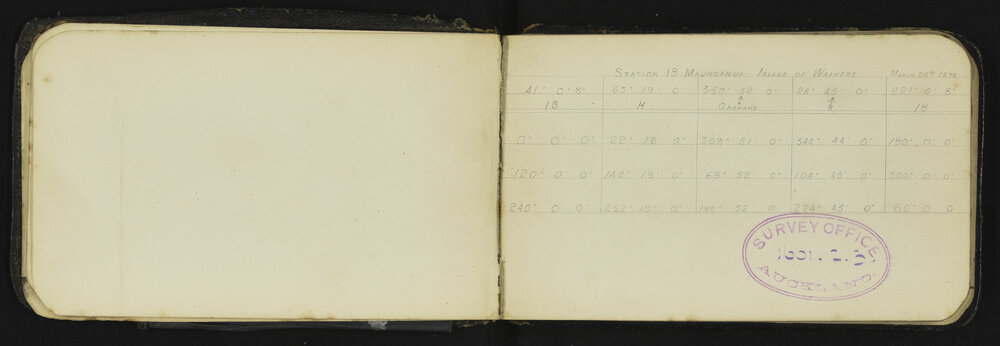 STATION 19 MAUNGANUI ISLAND OF WAIHEKE MARCH 26TH
41° 0' 8" 63° 19' 0" 350° 52' 0" 26° 45' 0" 221° 0' 8"
18 H GRAHAMS 18
0° 0' 0" 22° 18' 0" 309° 51' 0" 344° 44' 0" 180° 0 0
120° 0 0 142° 19' 0" 69° 52' 0" 104° 45' 0" 300° 0 0
240° 0' 0" 262° 19' 0" 189° 52' 0" 224° 45' 0" 60° 0 0
SURVEY OFFICE,
AUCKLAND.